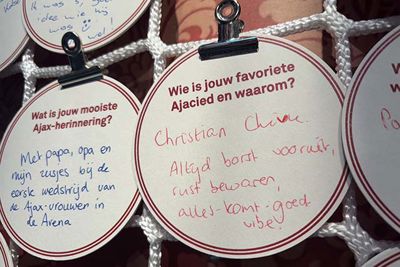 k was
idee wie wij
was
wel
Wat is jouw mooiste
Ajax-herinnering?
Met papa, opa en
mijn zusjes bij de
eerste wedstrijd van
de Ajax-vrouwen in
de Arena
Wie is jouw favoriete
Ajacied en waarom?
Christian
Altijd borst vooruit,
rust bewaren,
alles-komt-goed
vibe!
W